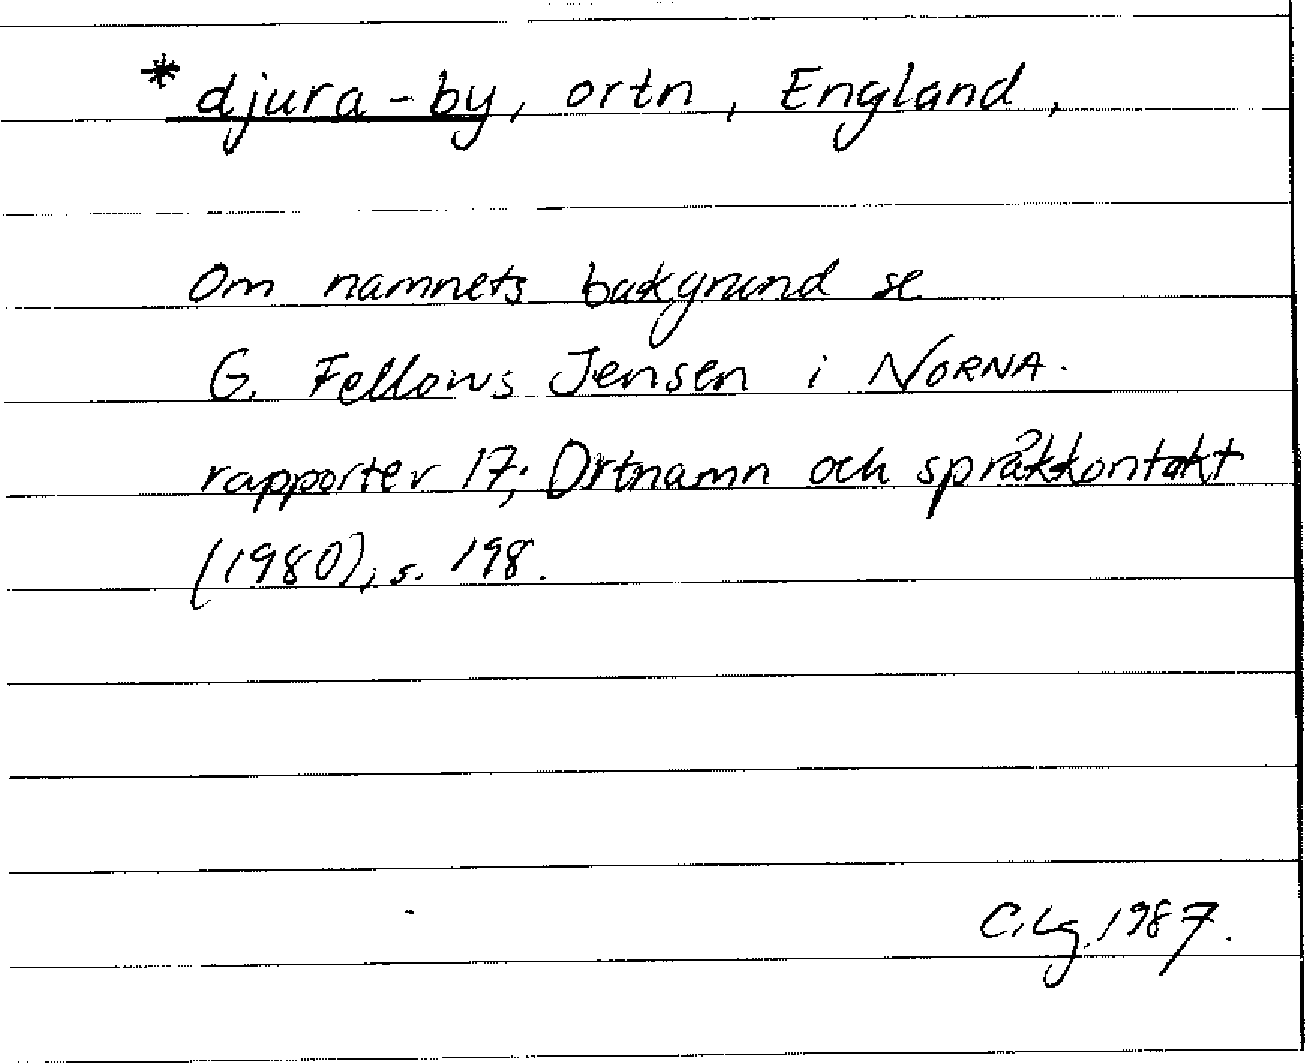 * djura-by, ortn, England,
Om namnets bakgrund se
G. Fellows Jensen i NORNA-
rapporter 17; Ortnamn och språkkontakt
(1980), s. 198.
C. Lg. 1987.